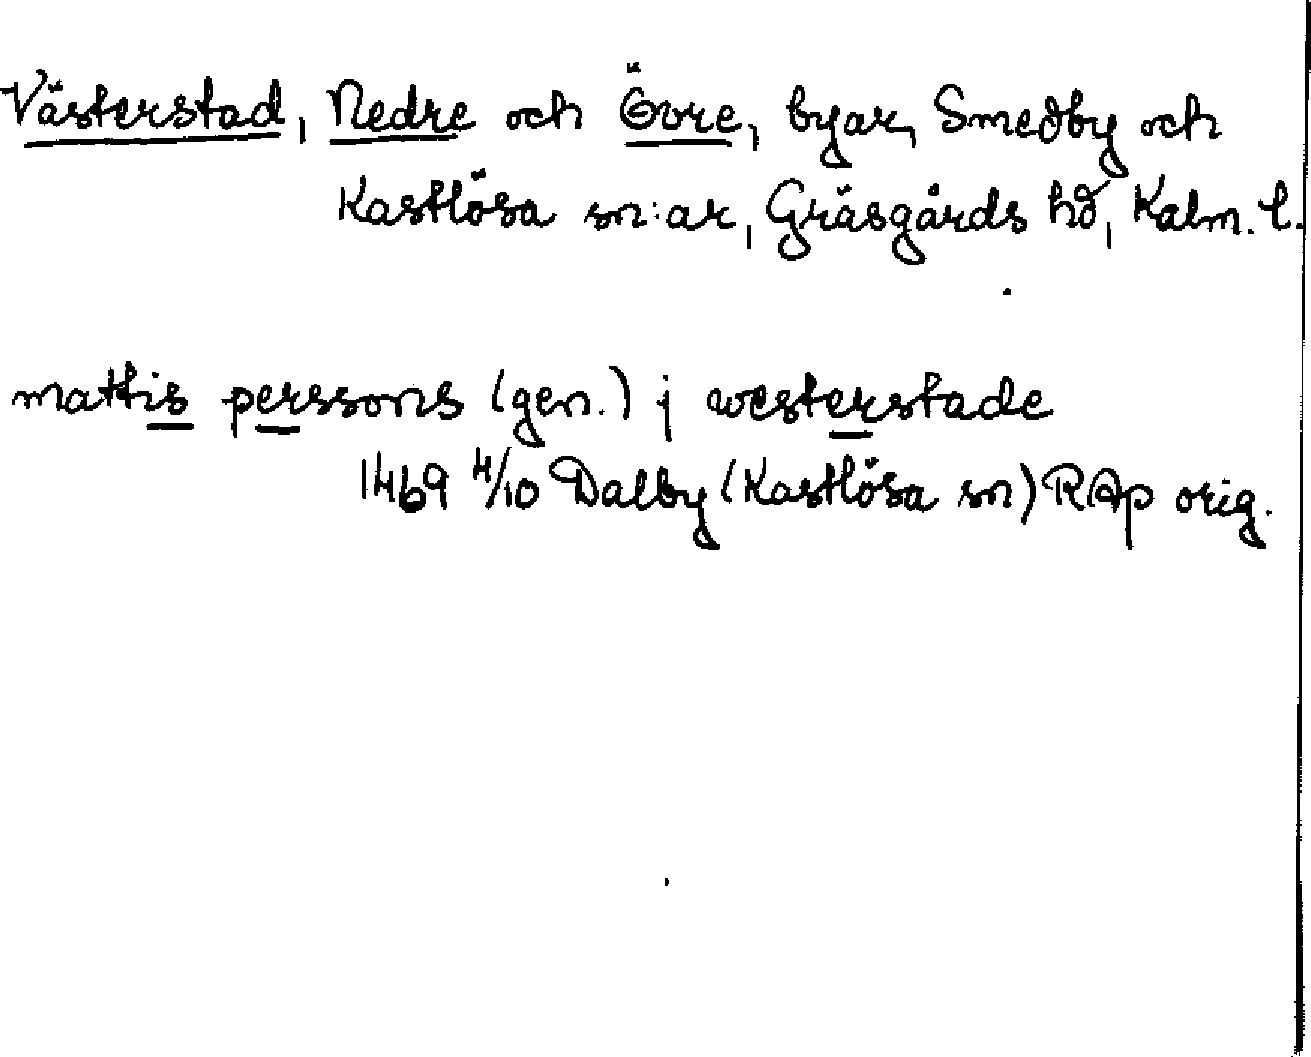 Västerstad, Nedre och Övre, byar, Smedby och
Kastlösa sn:ar, Gräsgårds hd, Kalm. l.
mattis perssons (gen.) j westerstade
1469 4/10 Dalby (Kastlösa sn) RAp orig.